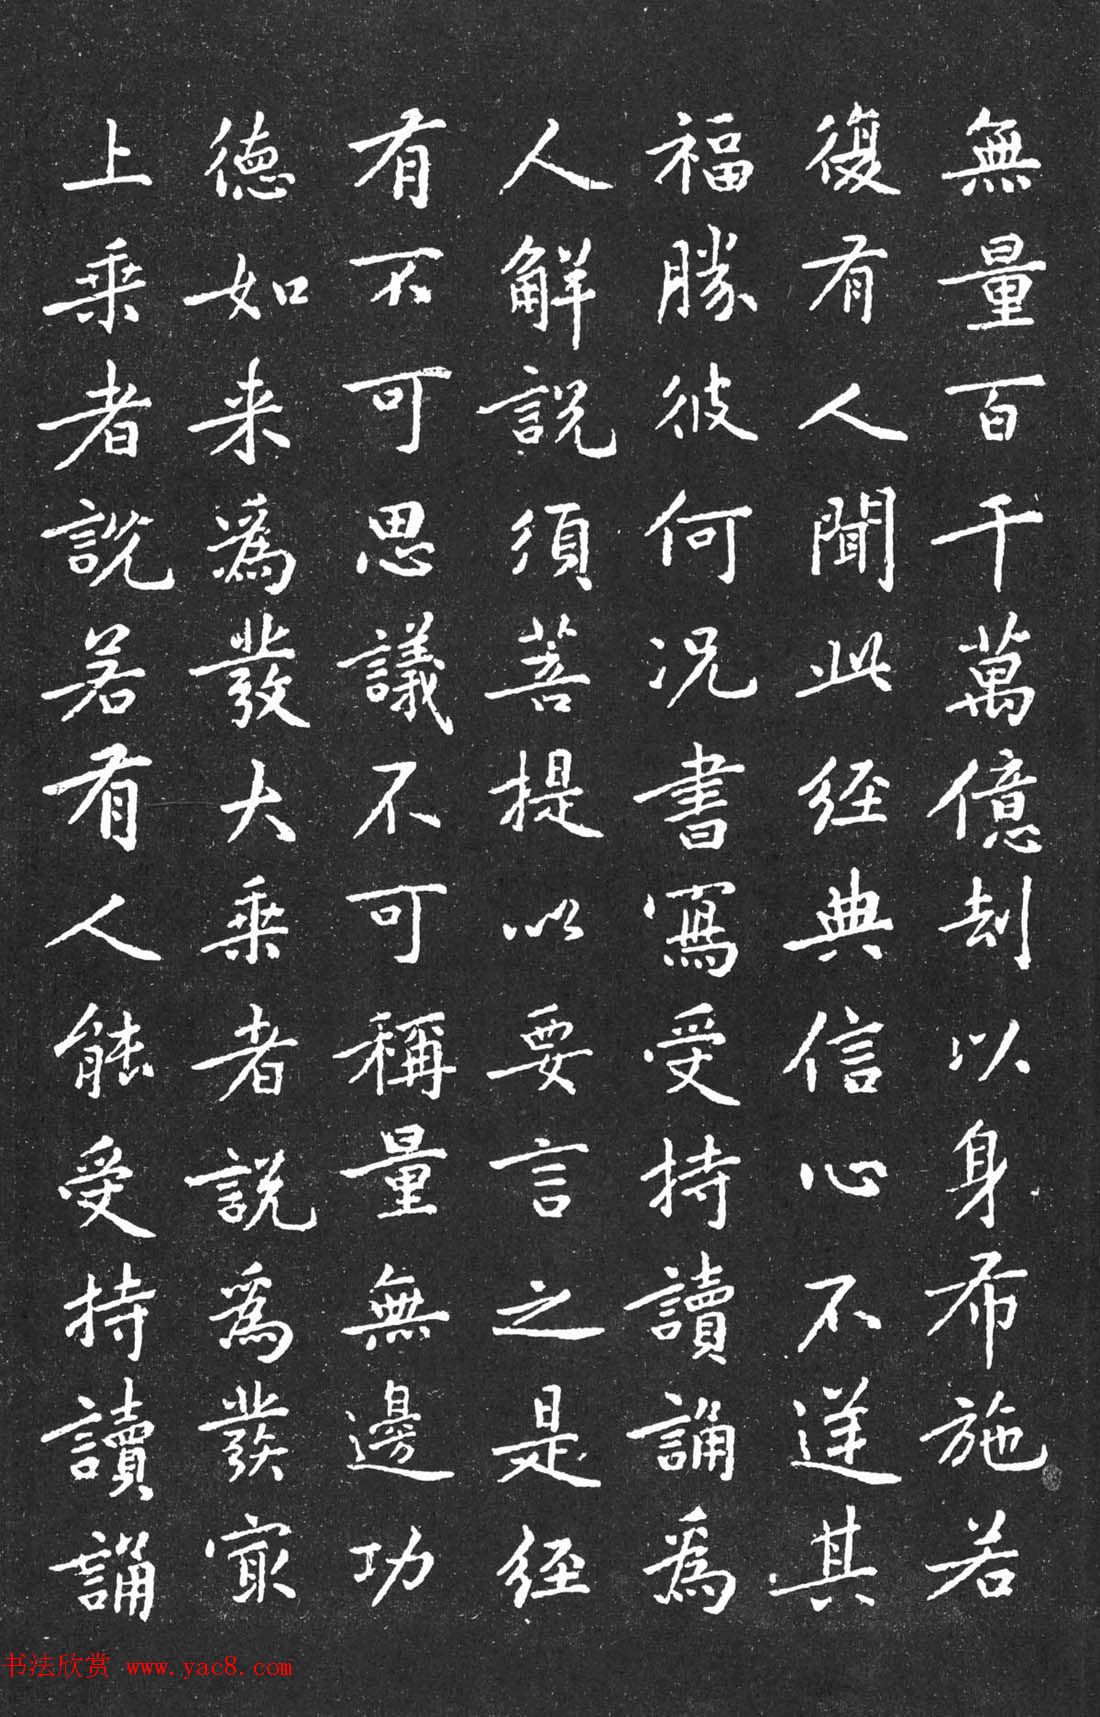 無量百千萬億刦以身布施若
復有人聞此経典信心不逆其
福勝彼何况書寫受持讀誦為
人解説須菩提以要言之是経
有不可思議不可稱量無邊功
德如来為發大乗者説為發㝡
上乗者説若有人能受持讀誦
书法欣赏 www.yac8.com